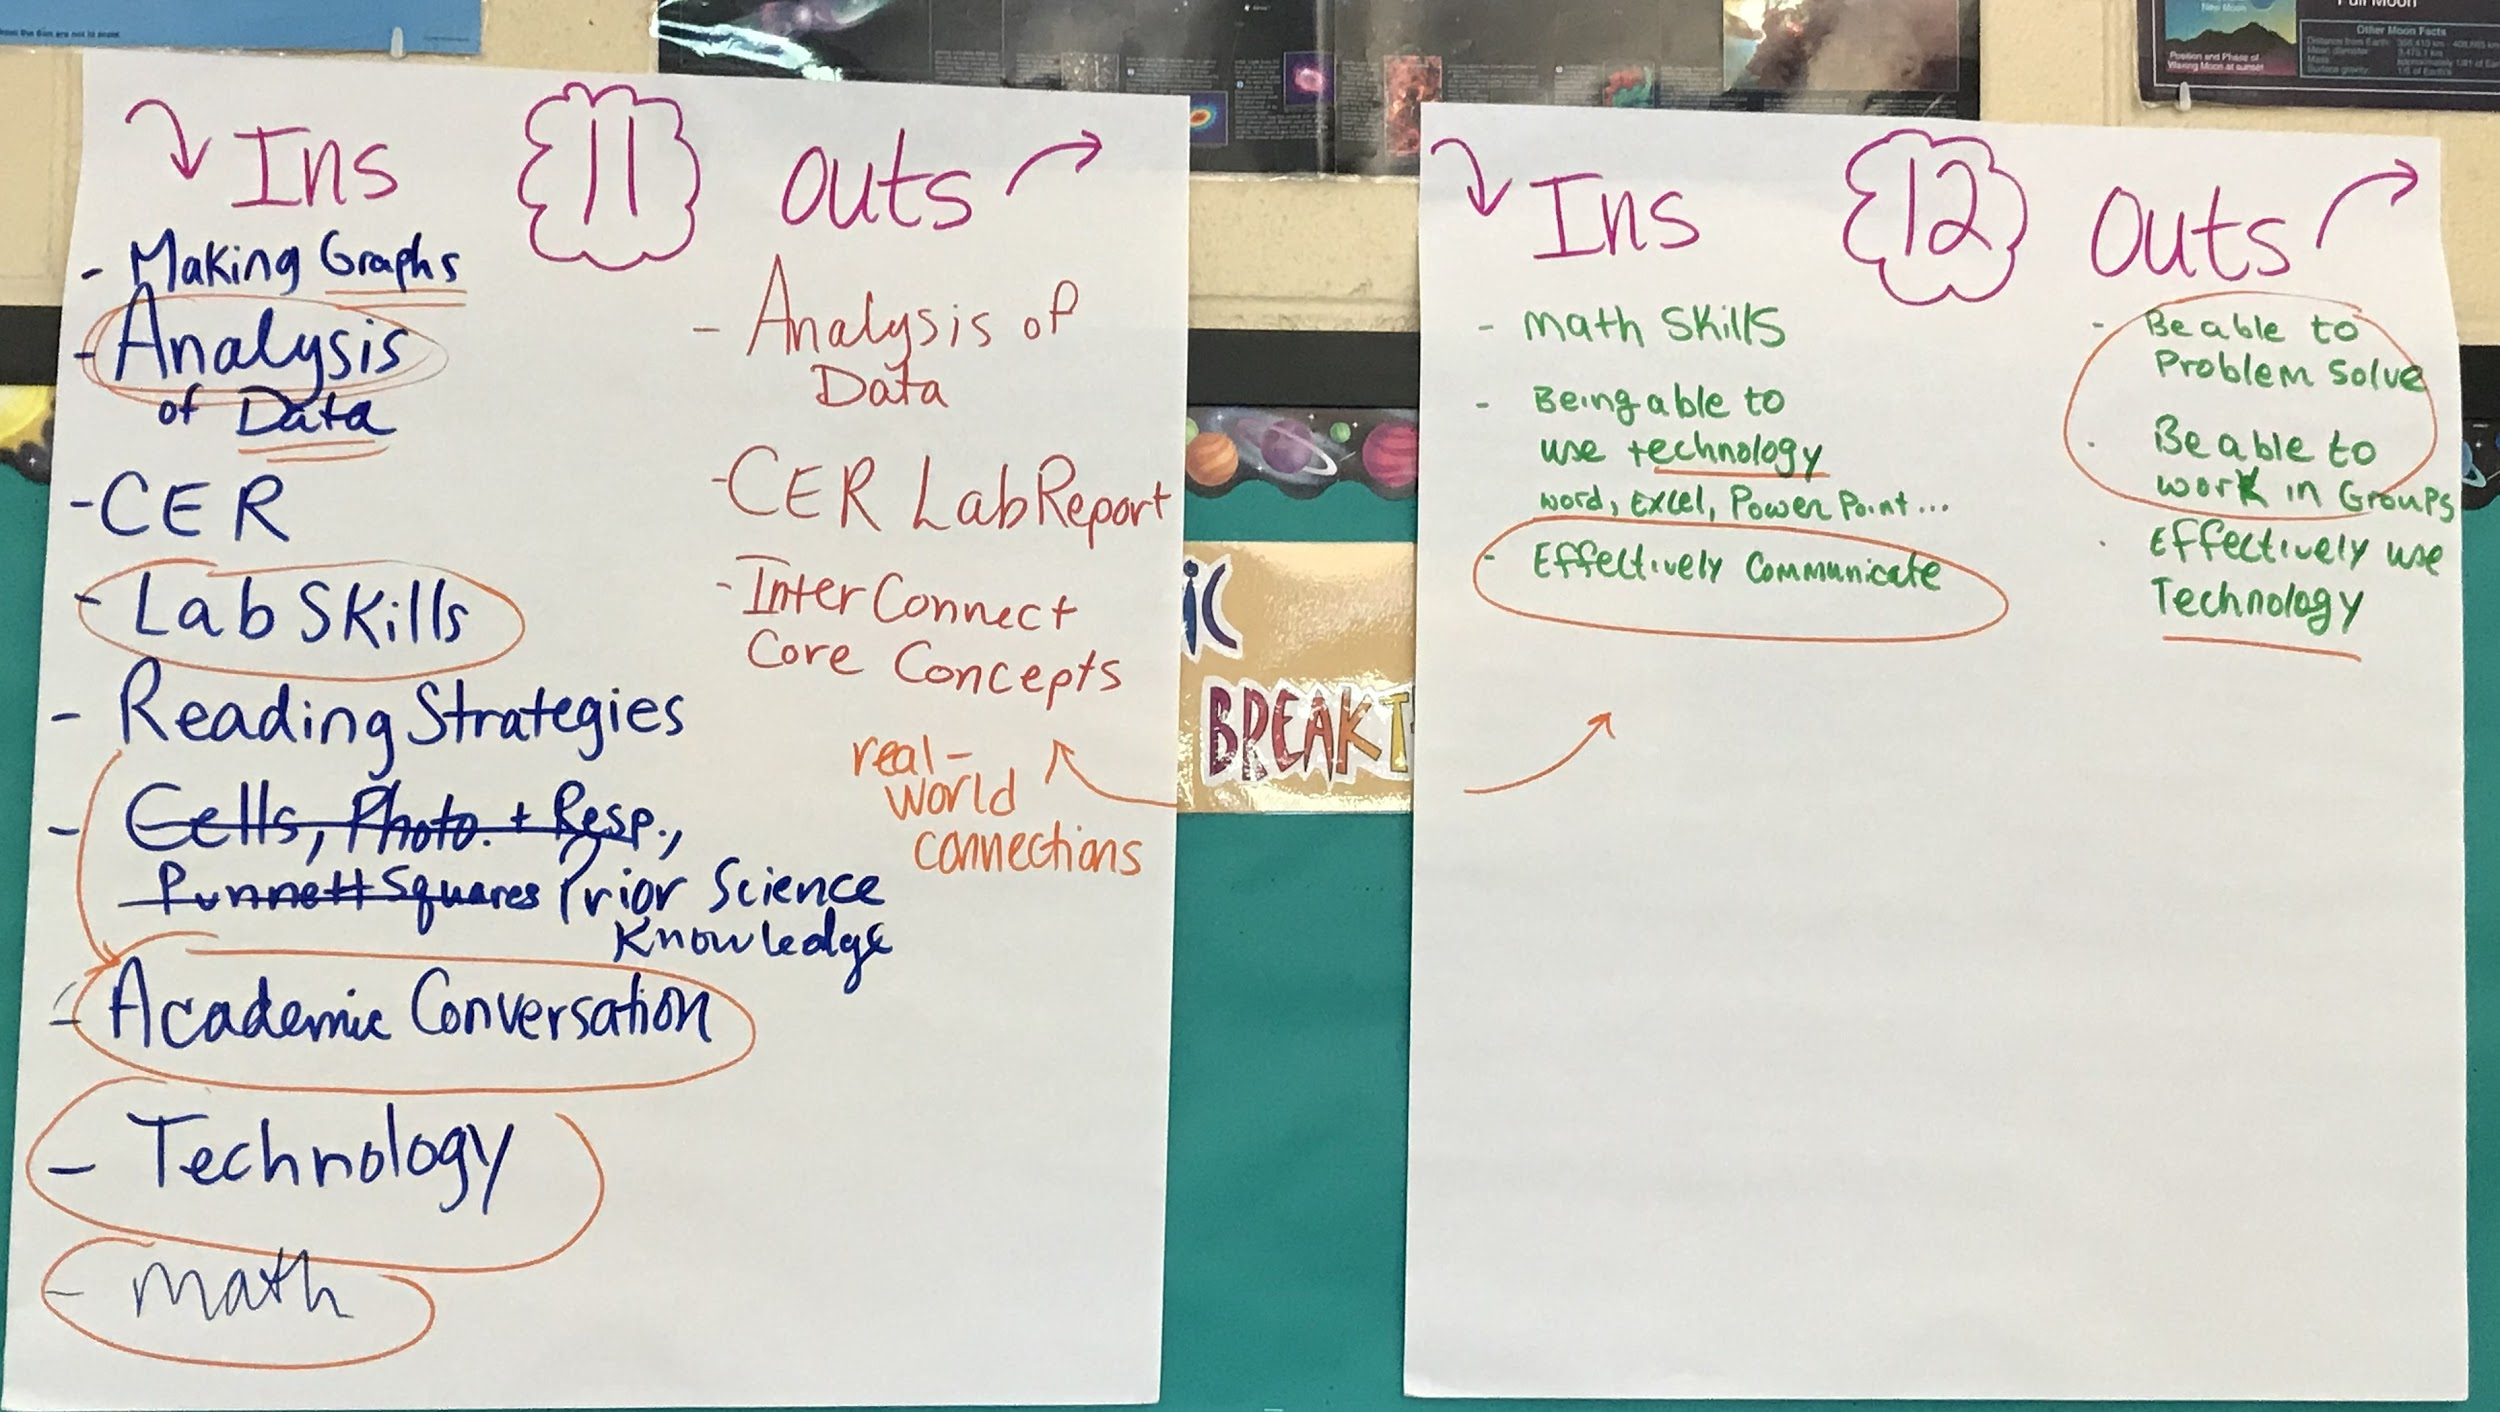 Ins 11 outs
- Making Graphs
- Analysis
of Data
- CER
- Lab Skills
- Reading Strategies
- Cells, Photo. + Resp.,
Punnett Squares Prior Science
Knowledge
- Academic Conversation
- Technology
- math
- Analysis of
Data
- CER Lab Report
- Inter Connect
Core Concepts
real-
world
connections
Ins 12 outs
- Math Skills
- Being able to
use technology
word, Excel, Power Point...
- Effectively Communicate
- Be able to
Problem Solve
. Be able to
work in Groups
. Effectively use
Technology
IC
BREAKT
New Moon
Position and Phase of
Waxing Moon at sunset
Full Moon
Other Moon Facts